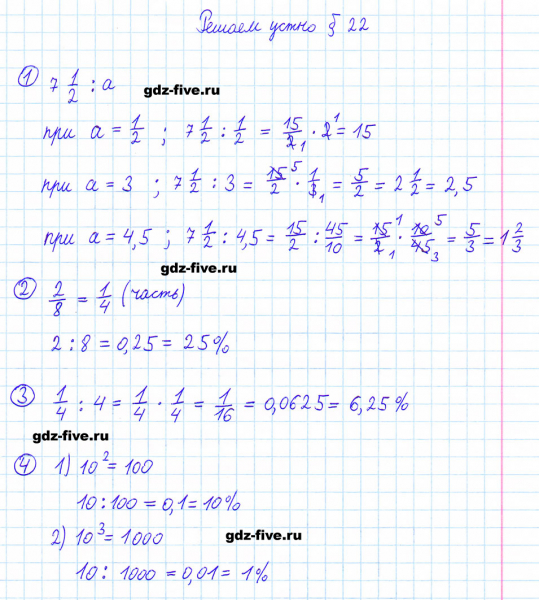 Решаем устно § 22
① 7 1/2 : a
gdz-five.ru
при a = 1/2 ; 7 1/2 : 1/2 = 15/2 1 · 2 1 = 15
при a = 3 ; 7 1/2 : 3 = 15 5/2 · 1/3 1 = 5/2 = 2 1/2 = 2,5
при a = 4,5 ; 7 1/2 : 4,5 = 15/2 : 45/10 = 15 1/2 1 · 10 5/45 3 = 5/3 = 1 2/3
gdz-five.ru
② 2/8 = 1/4 (часть)
2 : 8 = 0,25 = 25%
③ 1/4 : 4 = 1/4 · 1/4 = 1/16 = 0,0625 = 6,25%
gdz-five.ru
④ 1) 10² = 100
10 : 100 = 0,1 = 10%
2) 10³ = 1000
gdz-five.ru
10 : 1000 = 0,01 = 1%